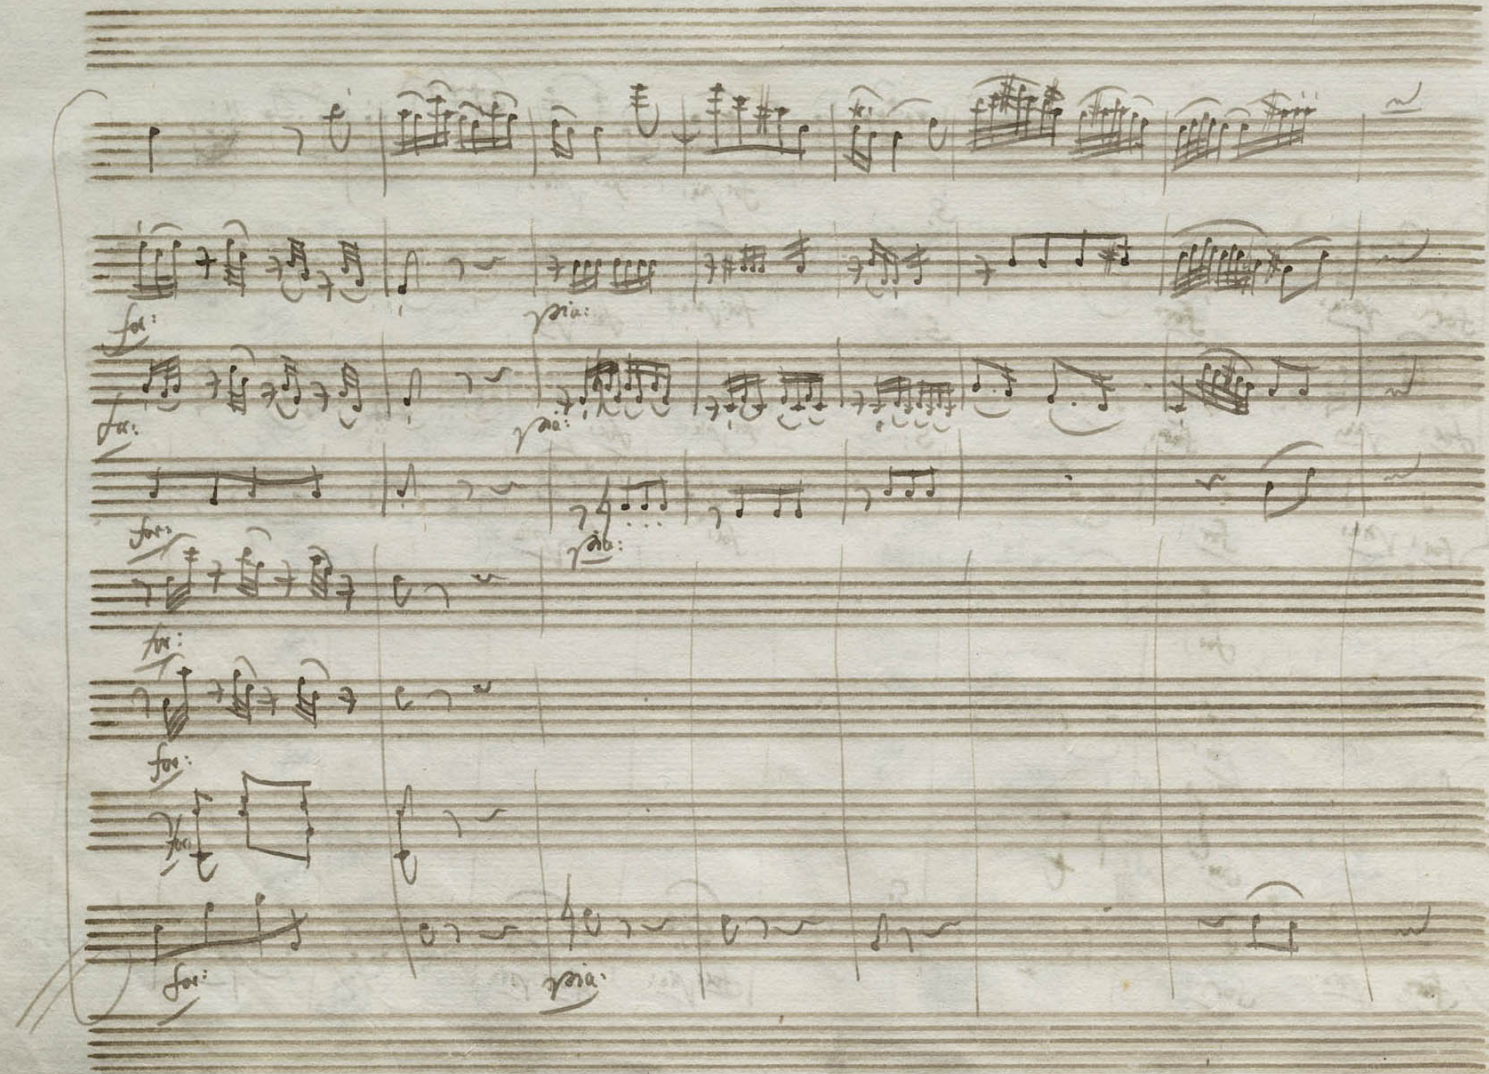 for:
pia:
for:
pia:
for:
pia:
for:
for:
for:
for:
pia: